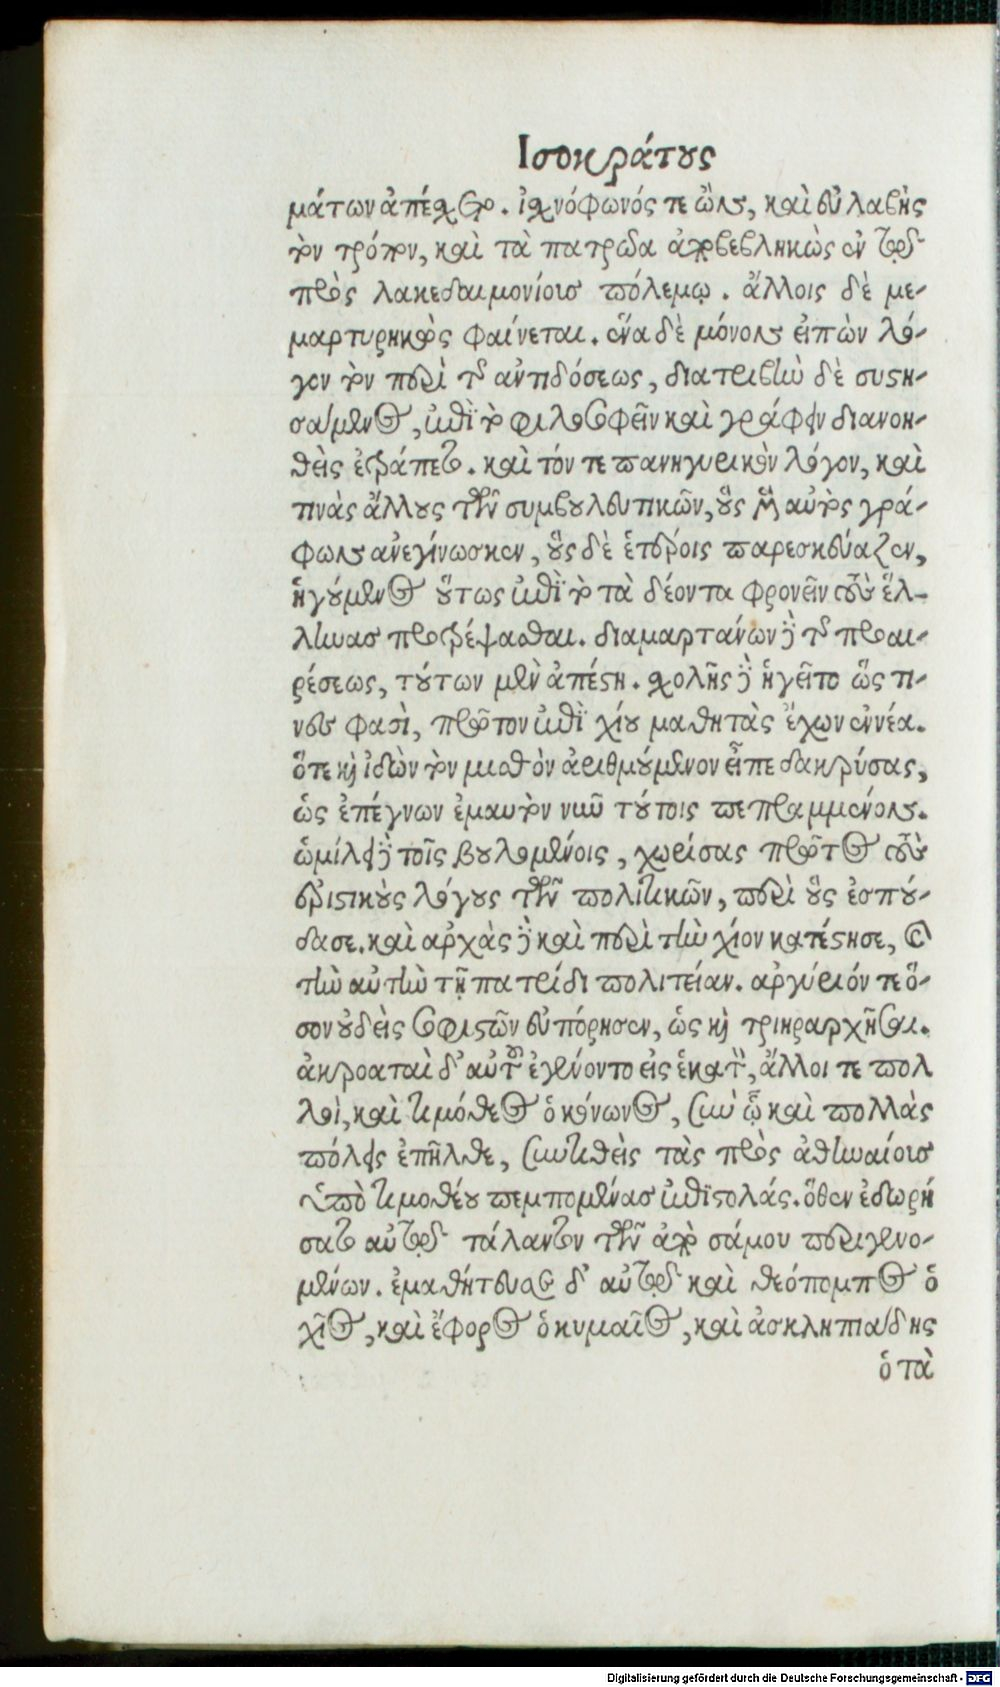 Ισοκράτους
μάτων ἀπέσχετο. ἰσχνόφωνός τε ὢν, καὶ εὐλαβὴς
τὸν τρόπον, καὶ τὰ πατρῶα ἀποβεβληκὼς ἐν τῷ
πρὸς λακεδαιμονίους πόλεμῳ. ἄλλοις δὲ με-
μαρτυρηκὼς φαίνεται. ἕνα δὲ μόνον εἰπὼν λό-
γον τὸν περὶ τῆς ἀντιδόσεως, διατριβὴν δὲ συστη-
σάμενος, ἐπὶ τὸ φιλοσοφεῖν καὶ γράφειν διανοη-
θεὶς ἐτράπετο. καὶ τόν τε πανηγυρικὸν λόγον, καὶ
τινὰς ἄλλους τῶν συμβουλευτικῶν, οὓς μὲν αὐτὸς γρά-
φων ἀνεγίνωσκεν, οὓς δὲ ἑτέροις παρεσκεύαζεν,
ἡγούμενος οὕτως ἐπὶ τὸ τὰ δέοντα φρονεῖν τοὺς ἕλ-
ληνας προτρέψασθαι. διαμαρτάνων δὲ τῆς προαι-
ρέσεως, τούτων μὲν ἀπέστη. σχολῆς δὲ ἡγεῖτο ὥς τι-
νες φασὶ, πρῶτον ἐπὶ χίου μαθητὰς ἔχων ἐννέα.
ὅτε καὶ ἰδὼν τὸν μισθὸν ἀριθμούμενον εἶπε δακρύσας,
ὡς ἐπέγνων ἐμαυτὸν νῦν τούτοις πεπραμμένον.
ὡμίλει δὲ τοῖς βουλομένοις, χωρίσας πρῶτος τοὺς
ἐριστικοὺς λόγους τῶν πολιτικῶν, περὶ οὓς ἐσπού-
δασε. καὶ ἀρχὰς δὲ καὶ περὶ τὴν χίον κατέστησε, καὶ
τὴν αὐτὴν τῇ πατρίδι πολιτείαν. ἀργύριόν τε ὅ-
σον οὐδεὶς σοφιστῶν εὐπόρησεν, ὡς καὶ τριηραρχῆσαι.
ἀκροαταὶ δ' αὐτοῦ ἐγένοντο εἰς ἑκατὸν, ἄλλοι τε πολ
λοὶ, καὶ τιμόθεος ὁ κόνωνος, σὺν ᾧ καὶ πολλὰς
πόλεις ἐπῆλθε, συντιθεὶς τὰς πρὸς ἀθηναίους
ὑπὸ τιμοθέου πεμπομένας ἐπιστολάς. ὅθεν ἐδωρή
σατο αὐτῷ τάλαντον τῶν ἀπὸ σάμου περιγενο-
μένων. ἐμαθήτευσε δ' αὐτῷ καὶ θεόπομπος ὁ
χῖος, καὶ ἔφορος ὁ κυμαῖος, καὶ ἀσκληπιάδης
ὁ τὰ
Digitalisierung gefördert durch die Deutsche Forschungsgemeinschaft - DFG